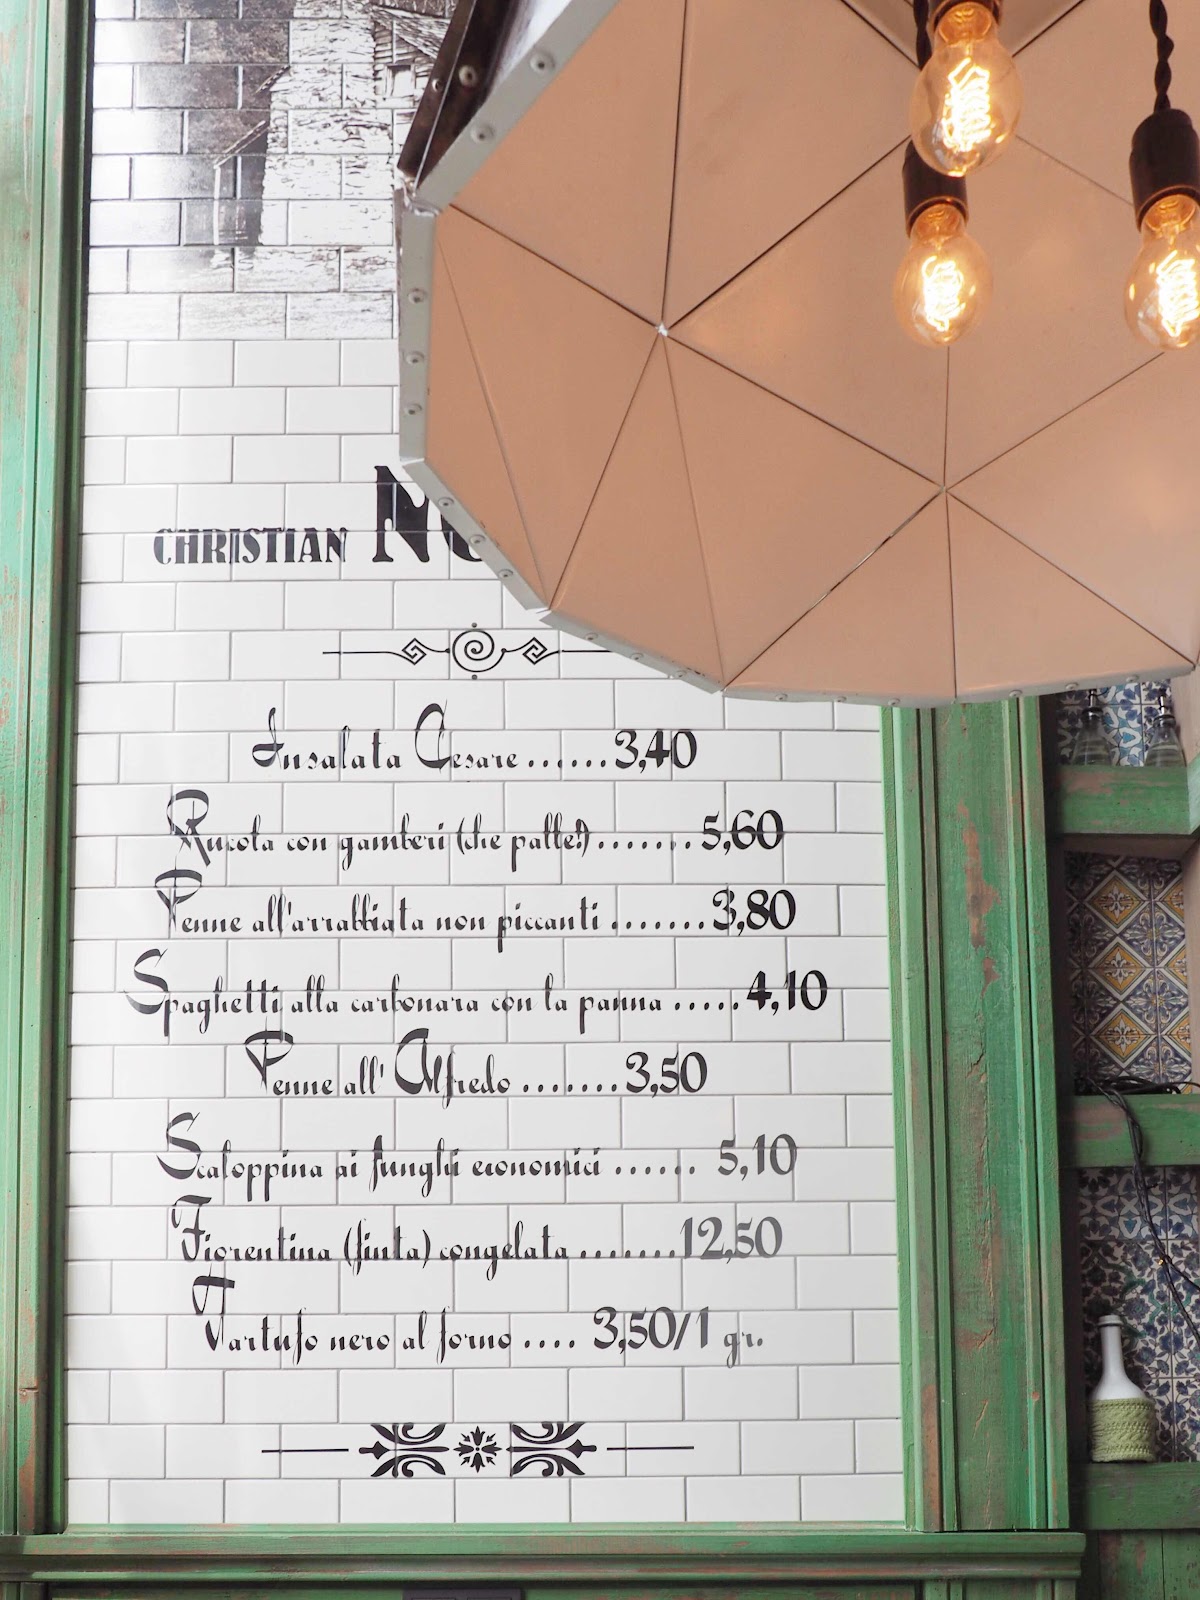 CHRISTIAN
Insalata Cesare......3,40
Rucola con gamberi (che palle!).......5,60
Penne all'arrabbiata non piccanti.......3,80
Spaghetti alla carbonara con la panna.....4,10
Penne all' Alfredo.......3,50
Scaloppina ai funghi economici...... 5,10
Fiorentina (finta) congelata.......12,50
Tartufo nero al forno.... 3,50/1 gr.